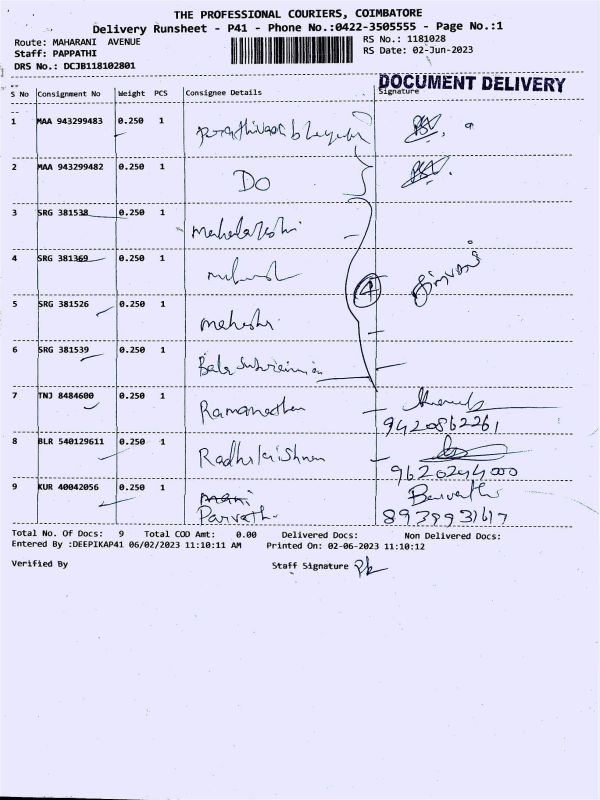 THE PROFESSIONAL COURIERS, COIMBATORE
Delivery Runsheet - P41 - Phone No.:0422-3505555 - Page No.:1
Route: MAHARANI AVENUE RS No.: 1181028
Staff: PAPPATHI RS Date: 02-Jun-2023
DRS No.: DCJB118102801
DOCUMENT DELIVERY
S No Consignment No Weight PCS Consignee Details Signature
1 MAA 943299483 0.250 1
2 MAA 943299482 0.250 1 DO
3 SRG 381538 0.250 1 mahalakshmi
4 SRG 381369 0.250 1
4
5 SRG 381526 0.250 1 mahesh
6 SRG 381539 0.250 1 Bala Subramanian
7 TNJ 8484600 0.250 1 Ramanathan
9420862261
8 BLR 540129611 0.250 1 Radhakrishnan
9620294000
9 KUR 40042056 0.250 1 mani
Parvath 8939931617
Total No. Of Docs: 9 Total COD Amt: 0.00 Delivered Docs: Non Delivered Docs:
Entered By :DEEPIKAP41 06/02/2023 11:10:11 AM Printed On: 02-06-2023 11:10:12
Verified By Staff Signature